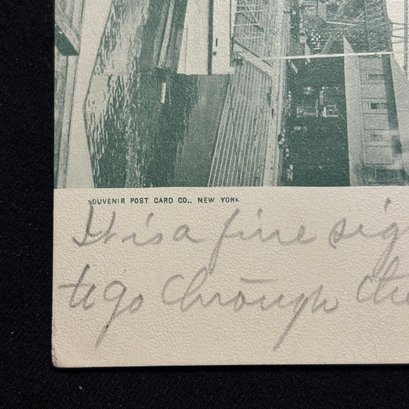 SOUVENIR POST CARD CO., NEW YORK
It is a fine sig
to go through the